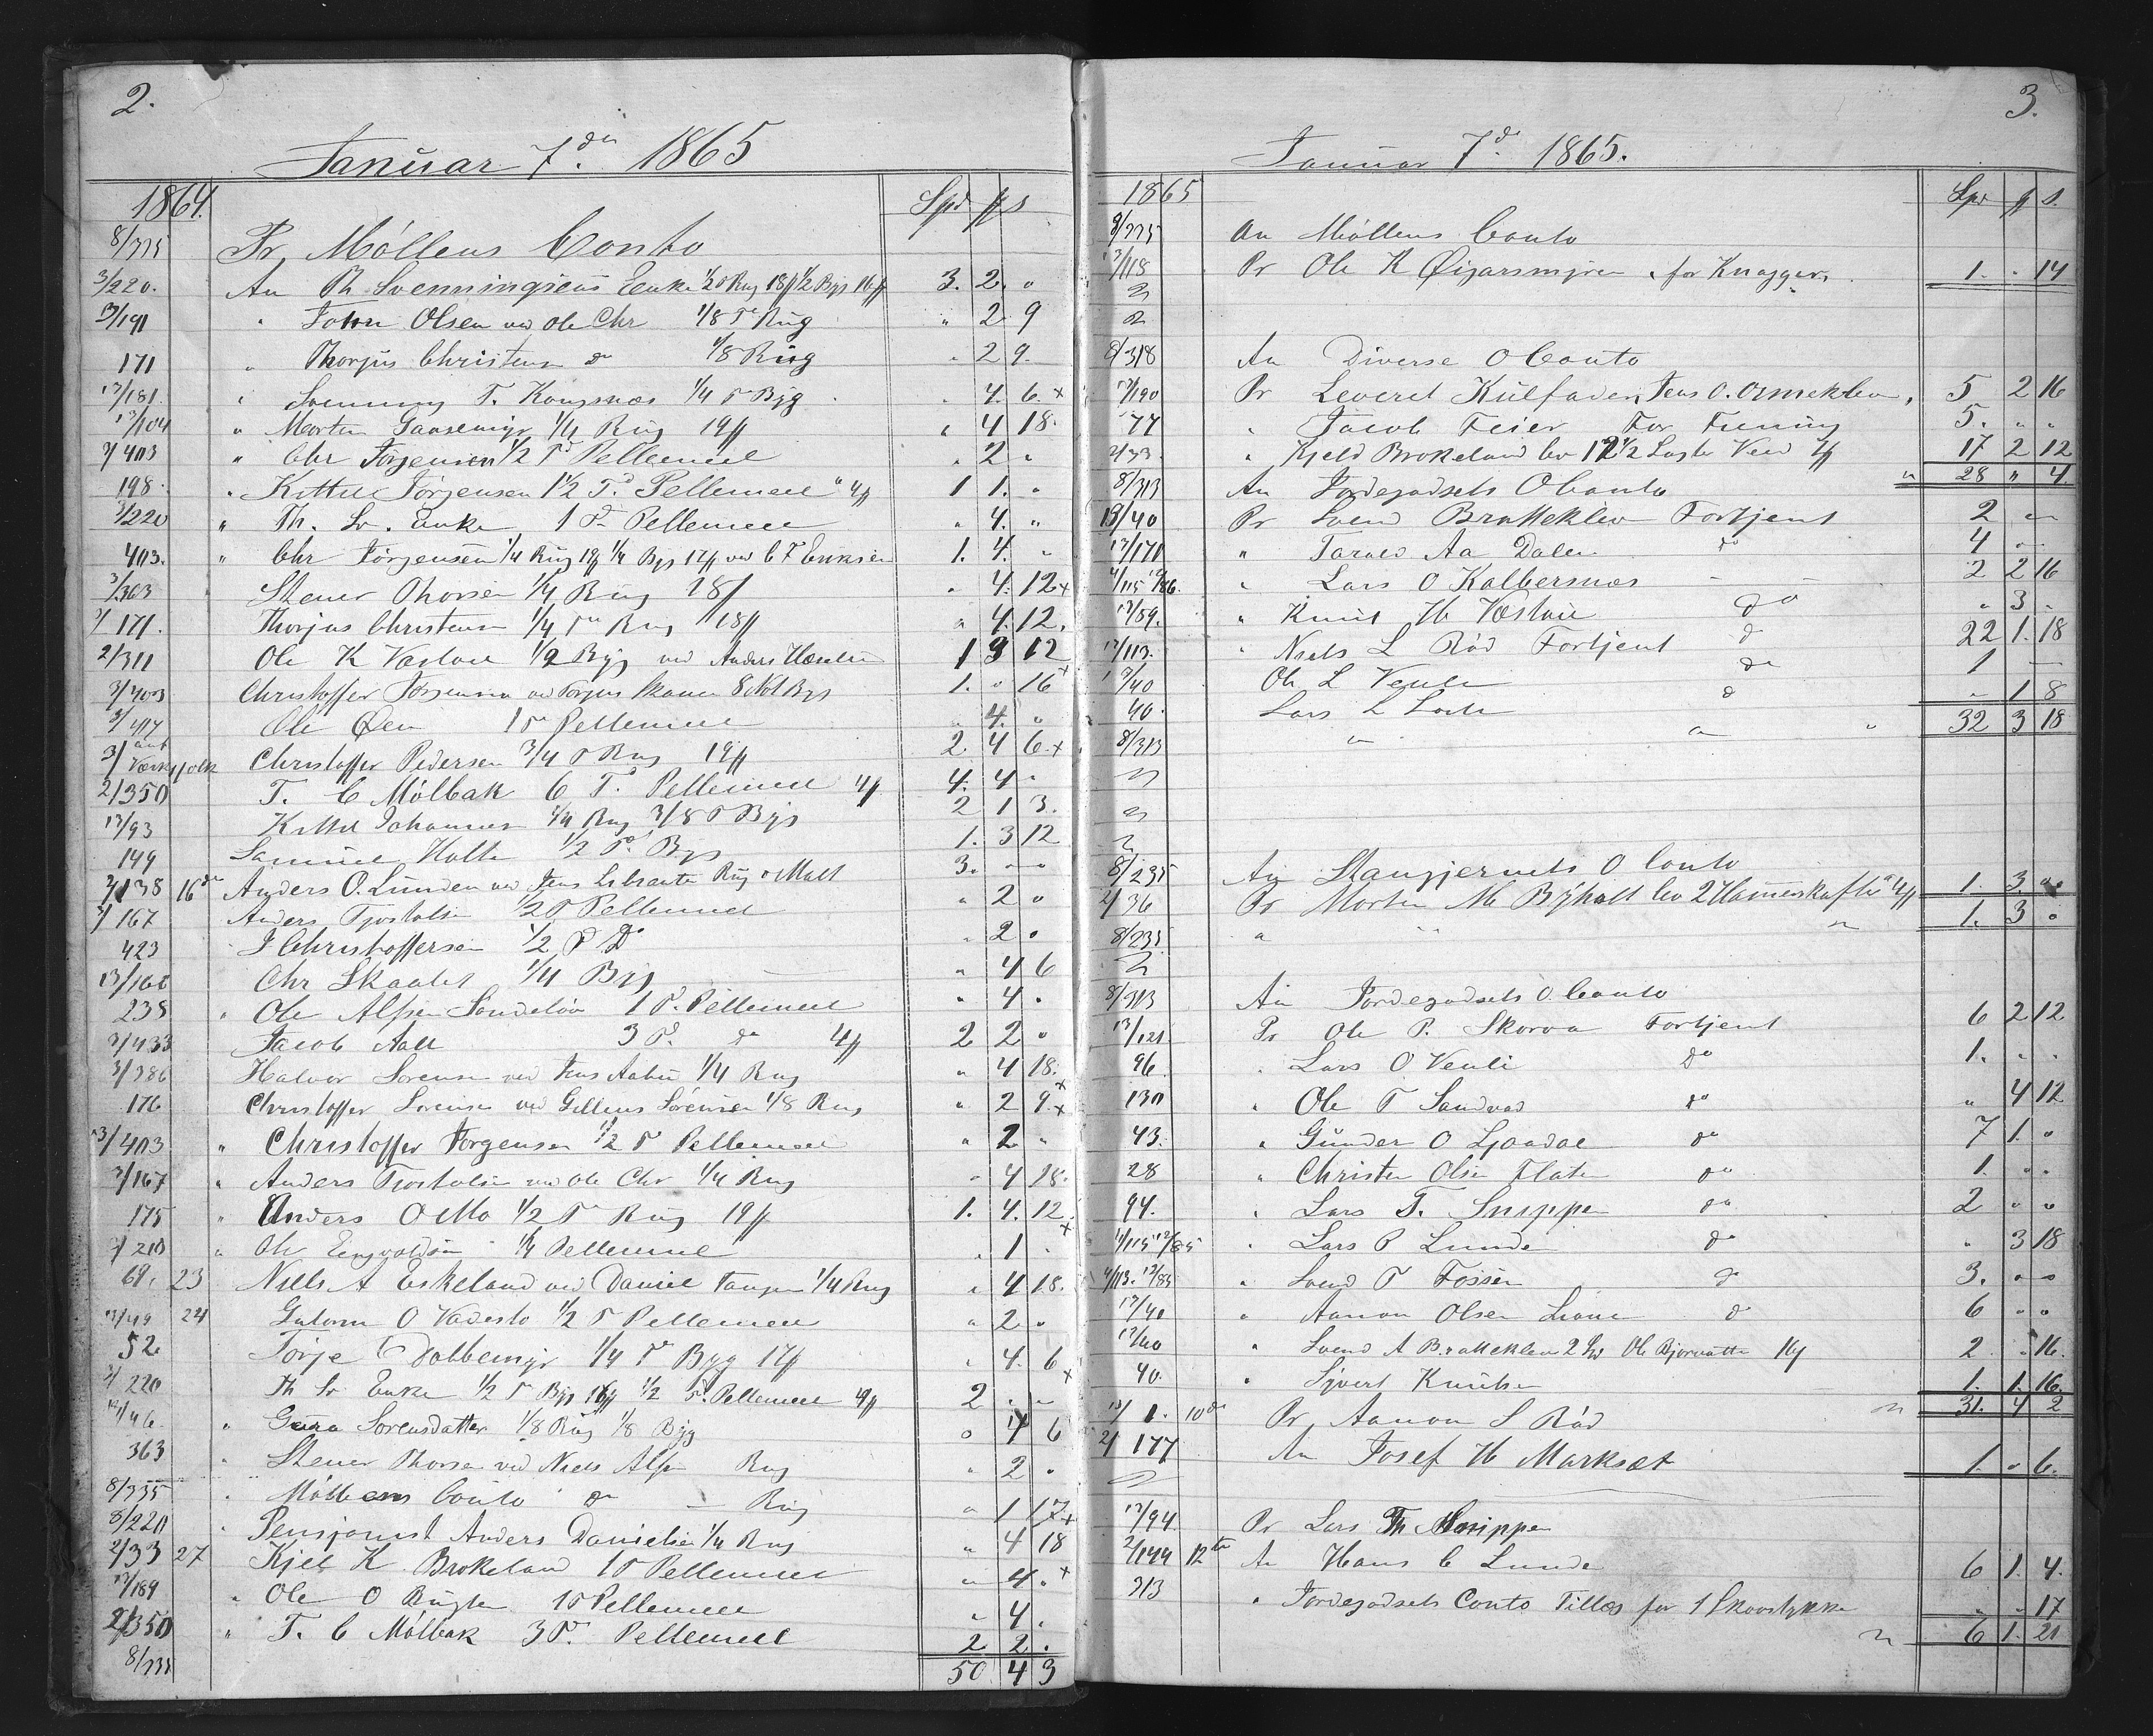 2.
Januar 7de 1865
1864. Spd # s
8/335 Pr. Møllens Conto
3/220. An Th Svenningsens Enke 1/2 d Rug 18# 1/2 Byg 16# 3. 2. "
13/191 " John Olsen ved Ole Chr 1/8 Td Rug " 2 9
171 " Thorjus Christensen do 1/8 Rug " 2 9.
13/181. " Svenning T. Kongsnæs 1/4 Td Byg " 4. 6. x
13/104 " Morten Gaasemyr 1/4 Rug 19# " 4 18.
3/403 " Chr Jørgensen 1/2 Td Pellemeel " 2 "
198. " Kittel Jørgensen 1 1/2 Td Pellemeel " 4# 1 1. "
3/220 " Th. Sv. Enke 1 Td Pellemeel " 4. "
403. " Chr Jørgensen 1/4 Rug 19# 1/4 Byg 17# ved C F Eriksen 1. 4. "
3/363 Stener Thorsen 1/4 Rug 18# " 4. 12 x
3/171. Thorjus Christensen 1/4 Td Rug 18# " 4. 12.
2/311 Ole K Væstøl 1/2 Byg ved Anders 1 3 12
3/403 Christoffer Jørgensen ved Torjus 8 Byg 1. " 16 x
3/417 Ole Øen 1 Td Pellemeel " 4. "
Christoffer Pedersen 3/4 T Rug 19# 2. 4 6. x
2/350 T. C Mølbak 6 Td Pellemeel 4# 4. 4 "
13/93 Kittel Johannes 1/4 Rug 3/8 T Byg 2 1 3.
149 Samuel Holte 1/2 Td Byg 1. 3 12
3/138 16de Anders O. Lunden ved Jens Rug & Malt 3. " "
3/167 Anders Tjostolsen 1/2 T Pellemeel " 2 "
423 J Christoffersen 1/2 T Do " 2 "
13/166 Chr Skaalet 1/4 Byg " 4 6
238 " Ole Alfsen Sondeløv 1 Td. Pellemeel " 4 "
3/433 Jacob Aall 3 Td. do 4# 2 2 "
3/386 Halvor Sorensen ved 1/4 Rug " 4 18. x
176 Christoffer Sorensen ved Gellius Sörensen 1/8 Rug " 2 9. x
3/403 " Christoffer Jørgensen 1/2 T Pellemeel " 2 "
3/167 " Anders Tjostolsen ved Ole Chr 1/4 Rug " 4 18.
175 " Anders O Mo 1/2 Td Rug 19# 1. 4. 12. x
3/210 " Ole Engvoldsen 1/4 Pellemeel " 1 "
69. 23 Niels A Eskeland ved Daniel Tangen 1/4 Rug " 4 18.
13/49 24 Gutorm O Vadesto 1/2 T Pellemeel " 2 "
52. Törje Dobbemyr 1/4 Td Byg 17# " 4. 6 x
3/220 Th Sv Enke 1/2 T Byg 16# 1/2 Td. Pellemeel 4# 2 " "
13/46. " Guro Sorensdatter 1/8 Rug 1/8 Byg " 4 6
363 " Stener Thorsen ved Niels Alfsen Rug " 2 "
8/335 " Møllens Conto do — Rug " 1 17 x
8/220 " Pensjonist Anders Danielsen 1/4 Rug " 4 18
2/33 27 Kjel K Brokeland 1 T Pellemeel " 4. x
13/189 " Ole O Rugten 1 T Pellemeel " 4.
2/350 " T. C Mølbak 3 Td. Pellemeel 2 2 .
8/335 50 4 3
3.
Januar 7de 1865.
1865 Spd # s.
8/335 An Møllens Conto
13/118 Pr Ole K Øigarsmyren for Knagger 1. " 14
8/318 An Diverse O Conto
13/190 Pr Leveret Kulfader, Jens O. Ormeklev, 5 2 16
77 " Jacob Feier For Feiing 5. " "
2/33. " Kjeld Brokeland lev 12 1/2 Læster Veed 7# 17 2 12
8/313 An Jordegodsets O Conto 28 " 4.
13/40 Pr Svend Bratteklev Fortjent 2 " "
13/171 " Tarald Aa Dalen do 4 " "
4/115 12/86. " Lars O Kalbersnæs — — 2 2 16
13/59. " Knut H Væstøl do " 3 "
13/113. " Niels L Rød Fortjent do 22 1. 18
13/40 Ole L Veuli do 1 —
40. Lars L do " 1 8
8/313 " " " 32 3 18
8/235 An Stangjernets O Conto
2/36 Pr Morten M Bÿholt lev 2 Hamerskafter 4# 1. 3. "
8/235 " " " 1. 3 "
8/313 An Jordegodsets O. Conto
13/121 Pr Ole P. Skorva Fortjent 6 2 12
96 " Lars O Veuli do 1. " "
130 " Ole T Sandvad do " 4 12
43. " Günder O Ljoodal do 7 1. "
28 " Christen Olsen Flaten do 1. " "
94. " Lars T. Snippen do 2 " "
4/115 12/85 " Lars P Lunde do " 3 18
4/113. 12/85 " Svend T Fossen do 3. " "
13/40 " Aanon Olsen Liane do 6 " "
13/40 " Svend A Bratteklev 2 Ole Bjorvatten 2 " 16.
40. " Sjvert Knutsen 1. 1. 16
31. 4 2
13/1. 10de Pr Aanon S Rød
2/177 An Josef H Marksæt 1. " 6.
13/94 Pr Lars Th Snippen
2/144 12te An Hans C Lunde 6 1. 4.
313 " Jordegodsets Conto Tillæg for 1 Skovstykke " " 17
6 1. 21